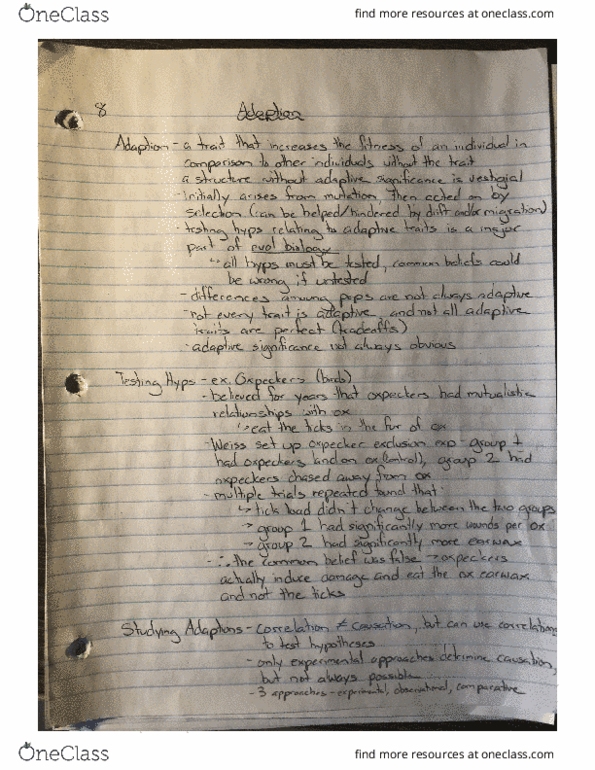 OneClass
find more resources at oneclass.com
8
Adaption
Adaption - a trait that increases the fitness of an individual in
comparison to other individuals without the trait
a structure without adaptive significance is vestigial
- initially arises from mutation, then acted on by
selection (can be helped/hindered by drift and/or migration)
- testing hyps relating to adaptive traits is a major
part of evol biology
↳ all hyps must be tested, common beliefs could
be wrong if untested
- differences among pops are not always adaptive
- not every trait is adaptive, and not all adaptive
traits are perfect (tradeoffs)
- adaptive significance not always obvious
Testing Hyps - ex. Oxpeckers (birds)
- believed for years that oxpeckers had mutualistic
relationships with ox
↳ eat the ticks in the fur of ox
- Weiss set up oxpecker exclusion exp - group 1
had oxpeckers land on ox (control), group 2 had
oxpeckers chased away from ox
- multiple trials repeated found that:
↳ tick load didn't change between the two groups
→ group 1 had significantly more wounds per ox
→ group 2 had significantly more earwax
- ∴ the common belief was false → oxpeckers
actually induce damage and eat the ox earwax
and not the ticks
Studying Adaptions - correlation ≠ causation, but can use correlations
to test hypotheses
- only experimental approaches determine causation,
but not always possible
- 3 approaches - experimental, observational, comparative
OneClass
find more resources at oneclass.com